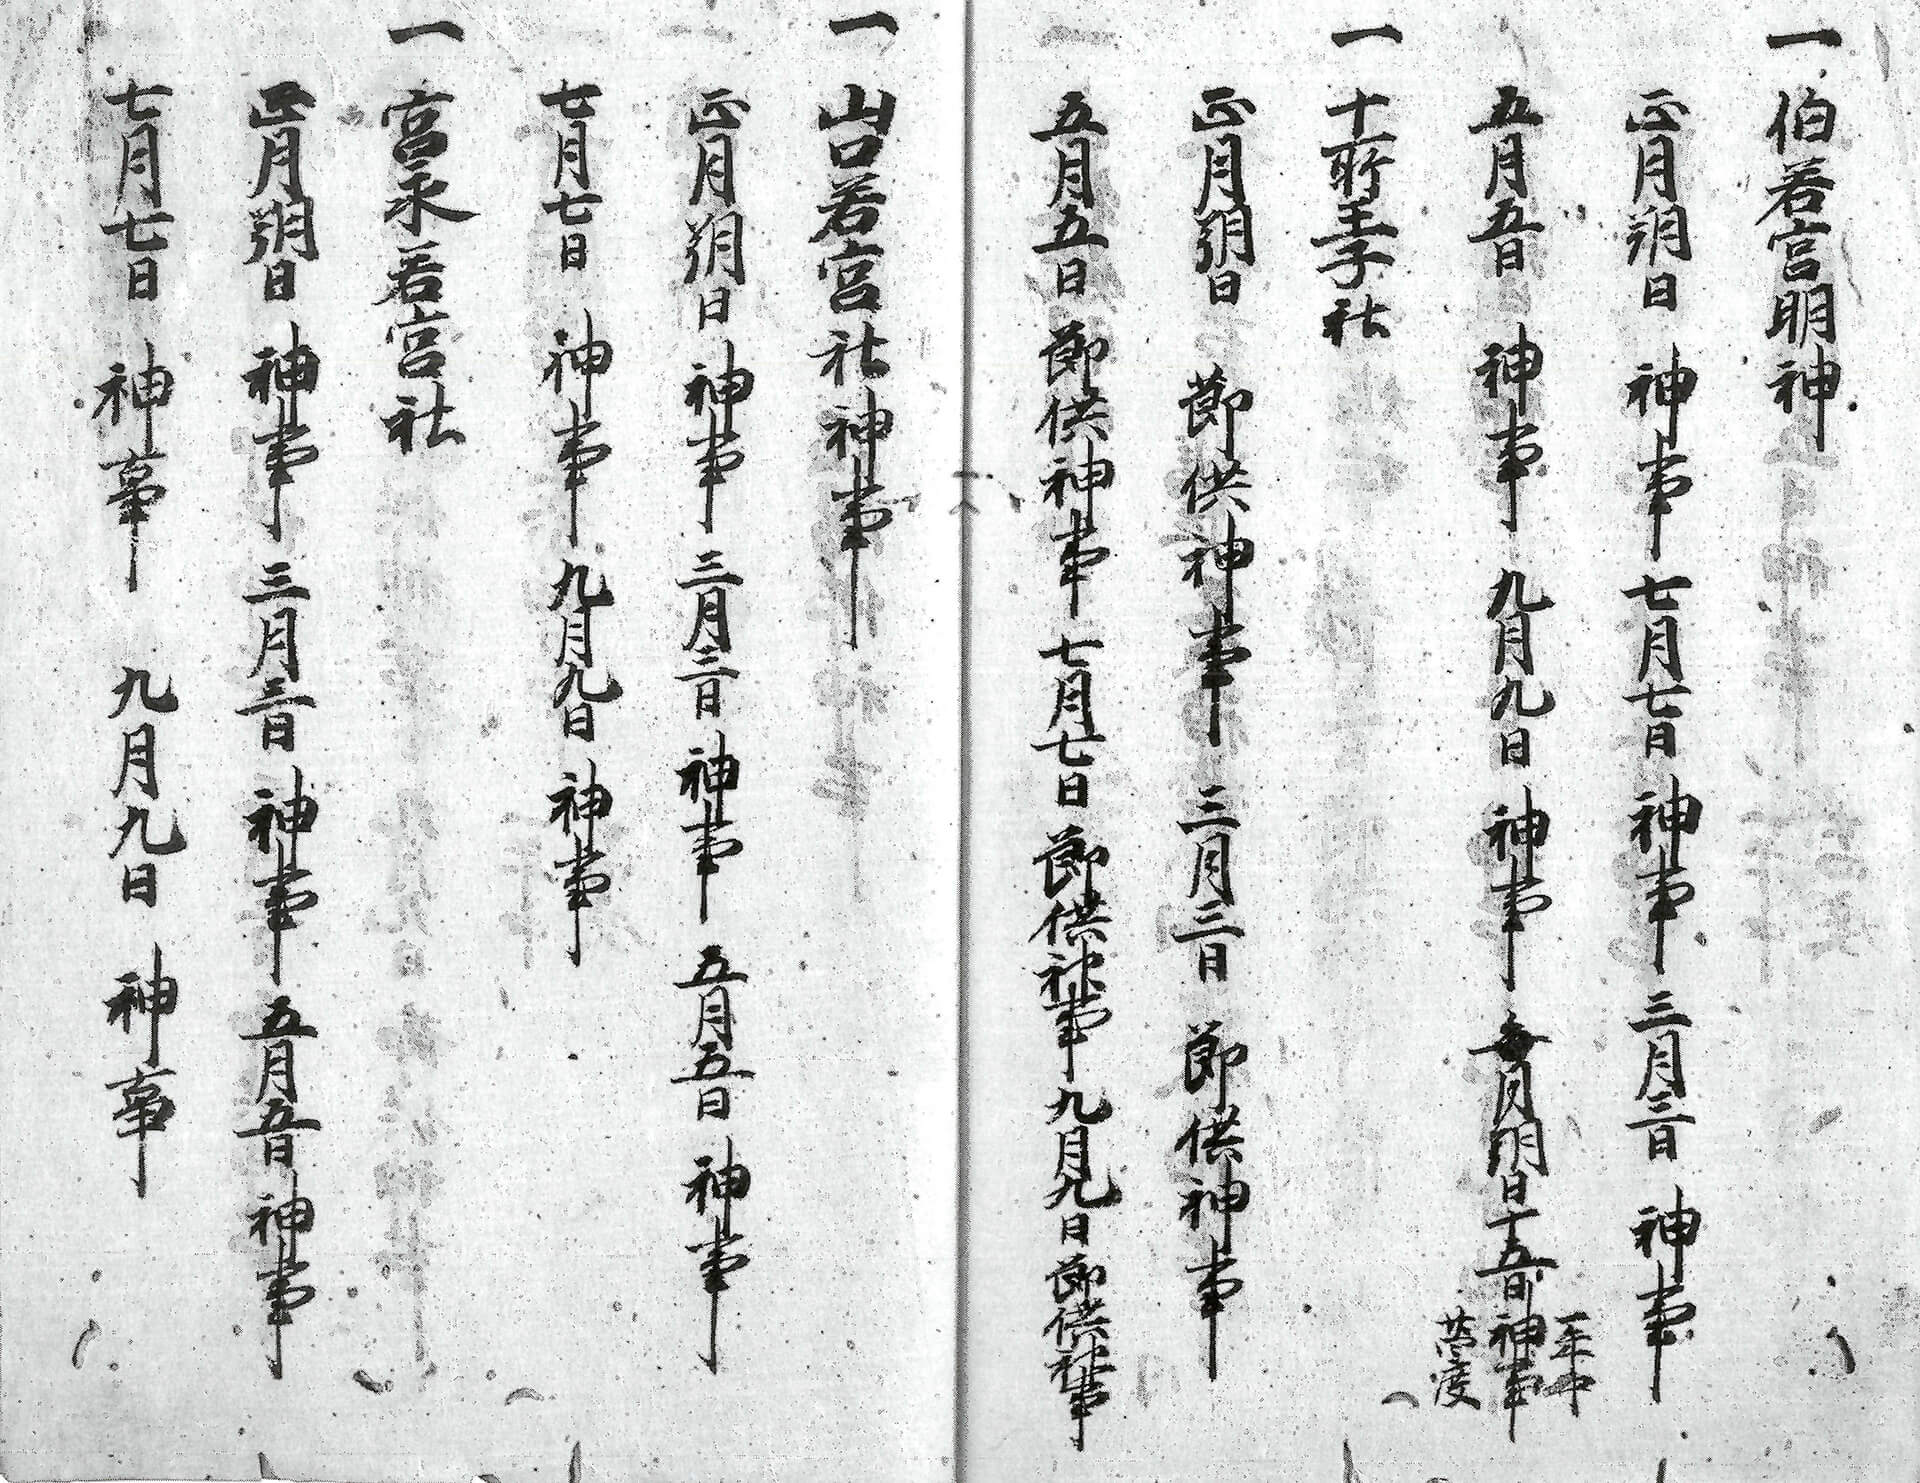 一伯若宮明神
正月朔日 神事 七月七日 神事 三月三日 神事
五月五日 神事 九月九日 神事 毎月朔日十五日神事
一年中
廿四度
一十所王子社
正月朔日 節供神事 三月三日 節供神事
五月五日 節供神事 七月七日 節供神事 九月九日 節供神事
一山口若宮社神事
正月朔日 神事 三月三日 神事 五月五日 神事
七月七日 神事 九月九日 神事
一宮永若宮社
正月朔日 神事 三月三日 神事 五月五日 神事
七月七日 神事 九月九日 神事